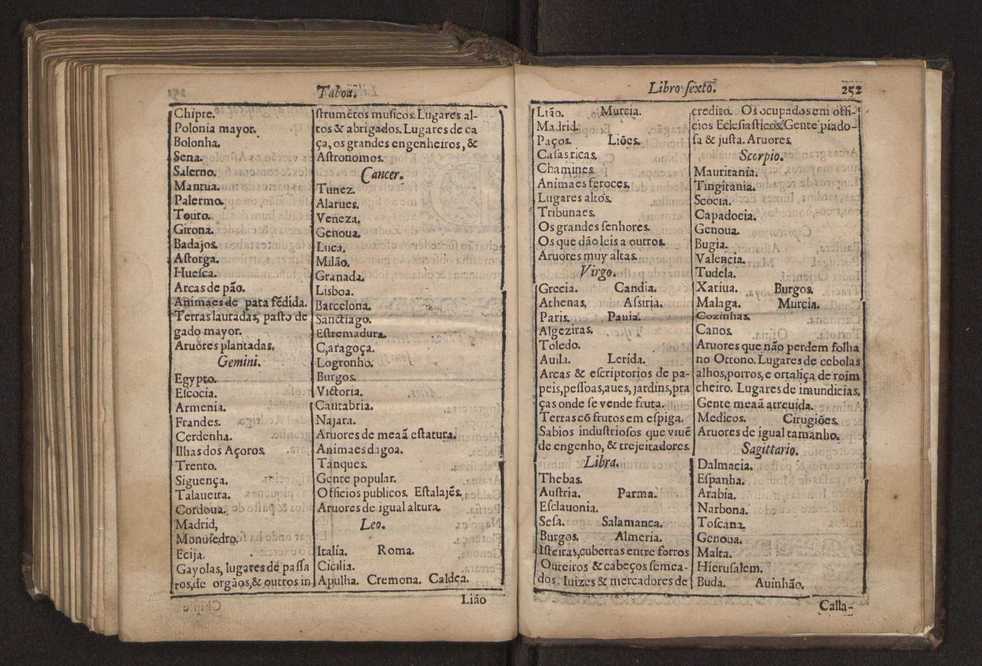 Taboa.
Chipre.
Polonia mayor.
Bolonha.
Sena.
Salerno.
Mantua.
Palermo.
Touro.
Girona.
Badajos.
Astorga.
Huesca.
Arcas de pão.
Animaes de pata fẽdida.
Terras lauradas, pasto de
gado mayor.
Aruores plantadas.
Gemini.
Egypto.
Escocia.
Armenia.
Frandes.
Cerdenha.
Ilhas dos Açoros.
Trento.
Siguença.
Talaueira.
Cordoua.
Madrid,
Monuiedro.
Ecija.
Gayolas, lugares de passa
ros, de orgãos, & outros in
strumẽtos musicos. Lugares al-
tos & abrigados. Lugares de ca
ça, os grandes engenheiros, &
Astronomos.
Cancer.
Tunez.
Alarues.
Veneza.
Genoua.
Luca.
Milão.
Granada.
Lisboa.
Barcelona.
Sanctiago.
Estremadura.
C,aragoça.
Logronho.
Burgos.
Victoria.
Cantabria.
Najara.
Aruores de meaã estatura.
Animaes dagoa.
Tanques.
Gente popular.
Officios publicos. Estalajẽs.
Aruores de igual altura.
Leo.
Italia. Roma.
Cicilia.
Apulha. Cremona. Caldea.
Lião
Libro sexto. 252
Lião. Murcia.
Madrid.
Paços. Liões.
Casas ricas.
Chamines.
Animaes feroces.
Lugares altos.
Tribunaes.
Os grandes senhores.
Os que dão leis a outros.
Aruores muy altas.
Virgo.
Grecia. Candia.
Athenas. Assiria.
Paris. Pauia.
Algeziras.
Toledo.
Auila. Lerida.
Arcas & escriptorios de pa-
peis, pessoas, aues, jardins, pra
ças onde se vende fruta.
Terras cõ frutos em espiga.
Sabios industriosos que viuẽ
de engenho, & trejeitadores
Libra.
Thebas.
Austria. Parma.
Esclauonia.
Sesa. Salamanca.
Burgos. Almeria.
Isteiras, cubertas entre forros
Outeiros & cabeços semea-
dos. Iuizes & mercadores de
credito. Os ocupados em offi-
cios Eclesiasticos. Gente piado-
sa & justa. Aruores.
Scorpio.
Mauritania.
Tingitania.
Scocia.
Capadocia.
Genoua.
Bugia.
Valencia.
Tudela.
Xatiua. Burgos.
Malaga. Murcia.
Cozinhas.
Canos.
Aruores que não perdem folha
no Otrono. Lugares de cebolas
alhos, porros, e ortaliça de roim
cheiro. Lugares de imundicias.
Gente meaã atreuida.
Medicos. Cirugiões.
Aruores de igual tamanho.
Sagittario.
Dalmacia.
Espanha.
Arabia.
Narbona.
Toscana.
Genoua.
Malta.
Hierusalem.
Buda. Auinhão.
Casta-